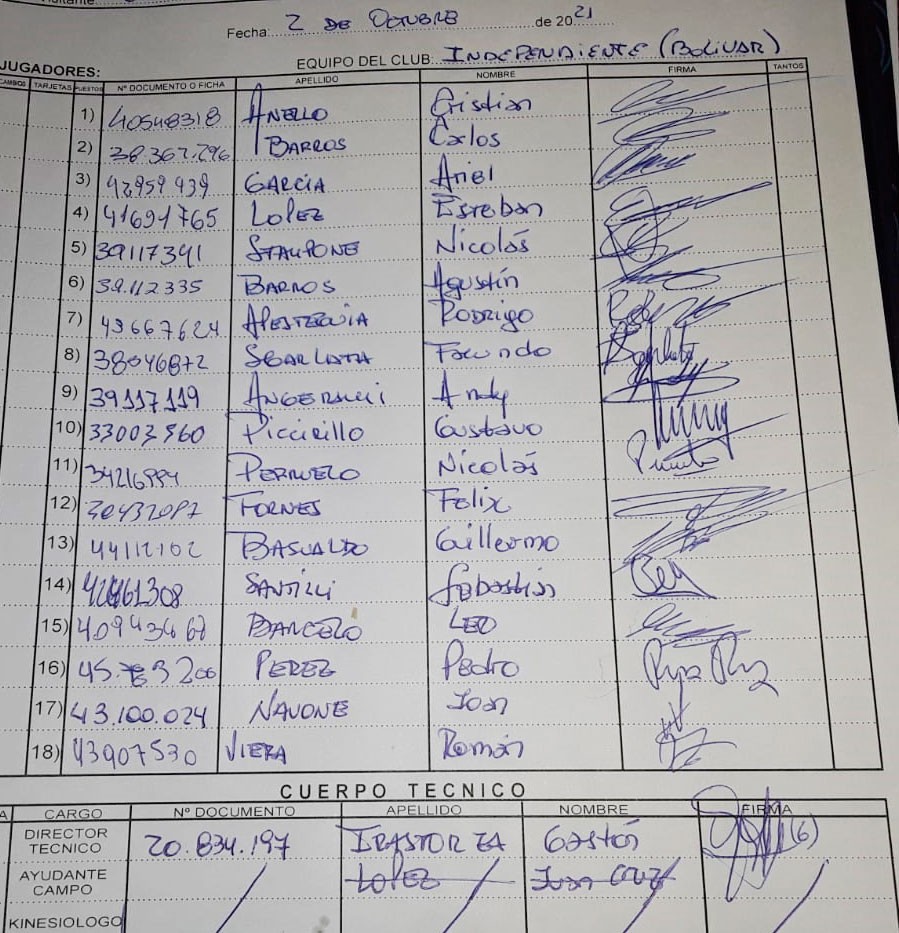 Fecha: 2 DE OCTUBRE de 2021
JUGADORES: EQUIPO DEL CLUB: INDEPENDIENTE (BOLIVAR)
CAMBIOS TARJETAS PUESTOS Nº DOCUMENTO O FICHA APELLIDO NOMBRE FIRMA TANTOS
1) 40548318 ANELLO Cristian
2) 38.367.296 BARROS Carlos
3) 42959939 GARCIA Ariel
4) 41691765 LOPEZ Esteban
5) 39117341 STAMPONE Nicolás
6) 39.112335 BARROS Agustín
7) 43667624 APESTEGUIA Rodrigo
8) 38046872 SBARLATTA Facundo
9) 39117119 Andy
10) 33003560 Piccirillo Gustavo
11) 34216994 Nicolás
12) FORNES Felix
13) 44112102 BASUALDO Guillermo
14) SANTILLI Sebastián
15) 40943468 BARCELÓ LEO
16) PEREZ Pedro
17) 43.100.024 NAVONE Joan
18) 43907530 VIERA Román
CUERPO TECNICO
CARGO Nº DOCUMENTO APELLIDO NOMBRE FIRMA
DIRECTOR TECNICO 20.834.197 IRASTORZA Gastón (6)
AYUDANTE CAMPO LOPEZ Juan Cruz
KINESIOLOGO